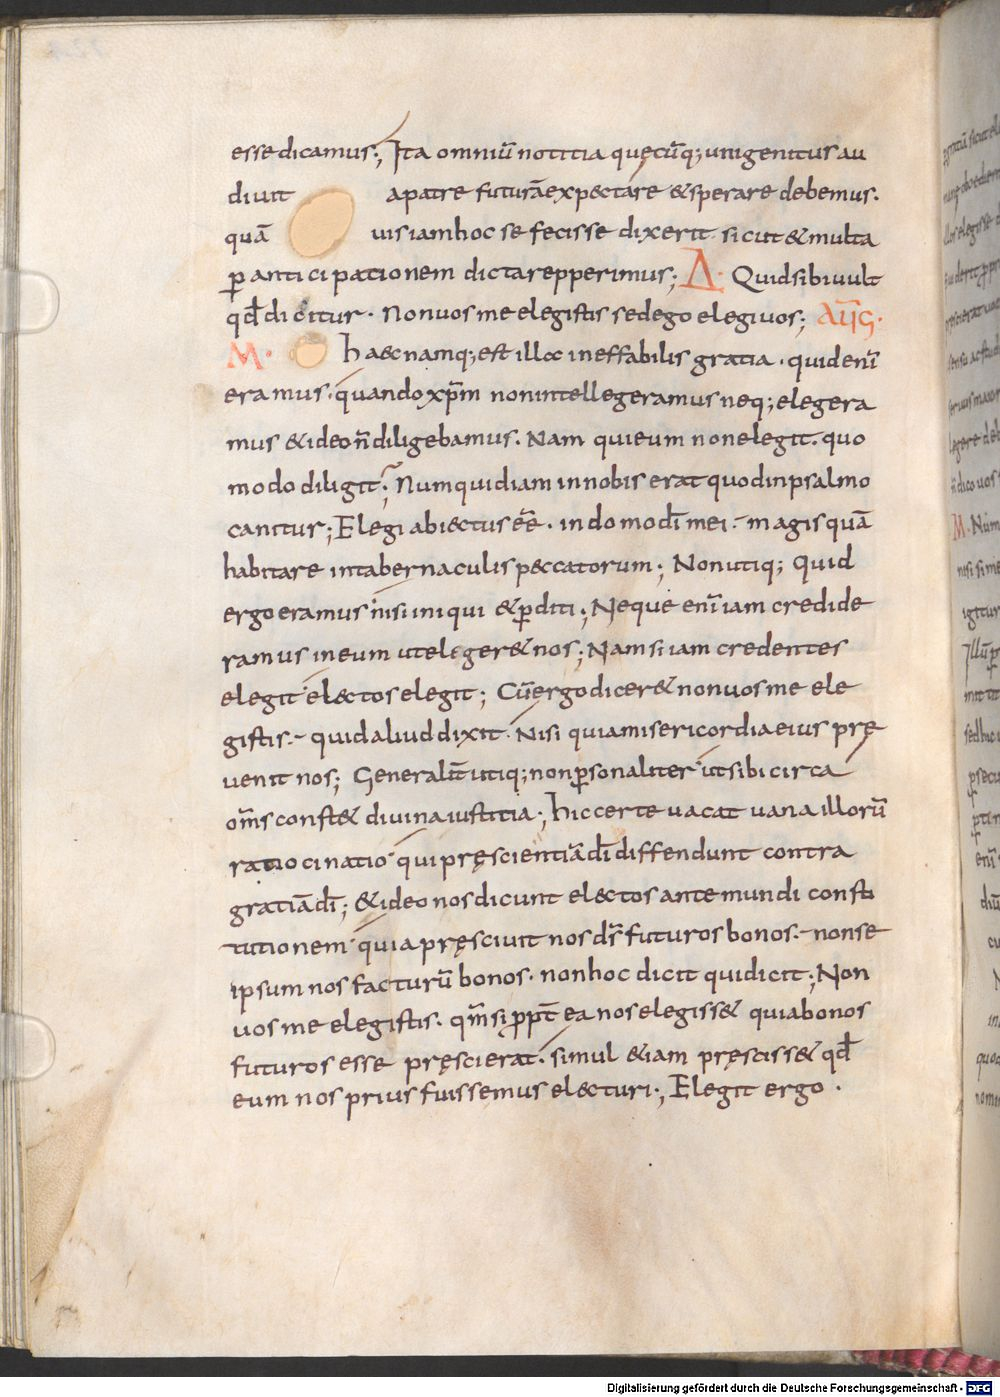 esse dicamus; Ita omniū notitia quęcūq; unigenitus au
diuit a patre futurā expectare & sperare debemus.
quā uis iam hoc se fecisse dixerit. sicut & multa
p̱ anticipationem dicta repperimus; Δ. Quid sibi uult
qđ dicitur. Non uos me elegistis sed ego elegi uos; AUḠ.
M. haec namq; est illa ineffabilis gratia. quid enī
eramus. quando xp̄m non intellegeramus neq; elegera
mus & ideo n̄ diligebamus. Nam qui eum non elegit. quo
modo diligit; Numquid iam in nobis erat quod in psalmo
canitur; Elegi abiectus eē. in domo dī mei. magis quā
habitare in tabernaculis peccatorum; Non utiq; Quid
ergo eramus nisi iniqui & p̱diti; Neque enī iam credide
ramus in eum ut eleger& nos; Nam si iam credentes
elegit electos elegit; Cū ergo dicer& non uos me ele
gistis. quid aliud dixit. Nisi quia misericordia eius prę
uenit nos; Generalit̄ utiq; non p̱sonaliter ut sibi circa
om̄s const& diuina iustitia; hic certe uacat uana illorū
ratiocinatio qui pręscientiā dī diffendunt contra
gratiā dī; & ideo nos dicunt electos ante mundi consti
tutionem quia pręsciuit nos ds̄ futuros bonos. non se
ipsum nos facturū bonos. non hoc dicit qui dicit; Non
uos me elegistis. qm̄ si p̱pt̄ ea nos elegiss& quia bonos
futuros esse pręscierat. simul &iam pręsciss& qđ
eum nos prius fuissemus electuri; Elegit ergo.
Digitalisierung gefördert durch die Deutsche Forschungsgemeinschaft - DFG